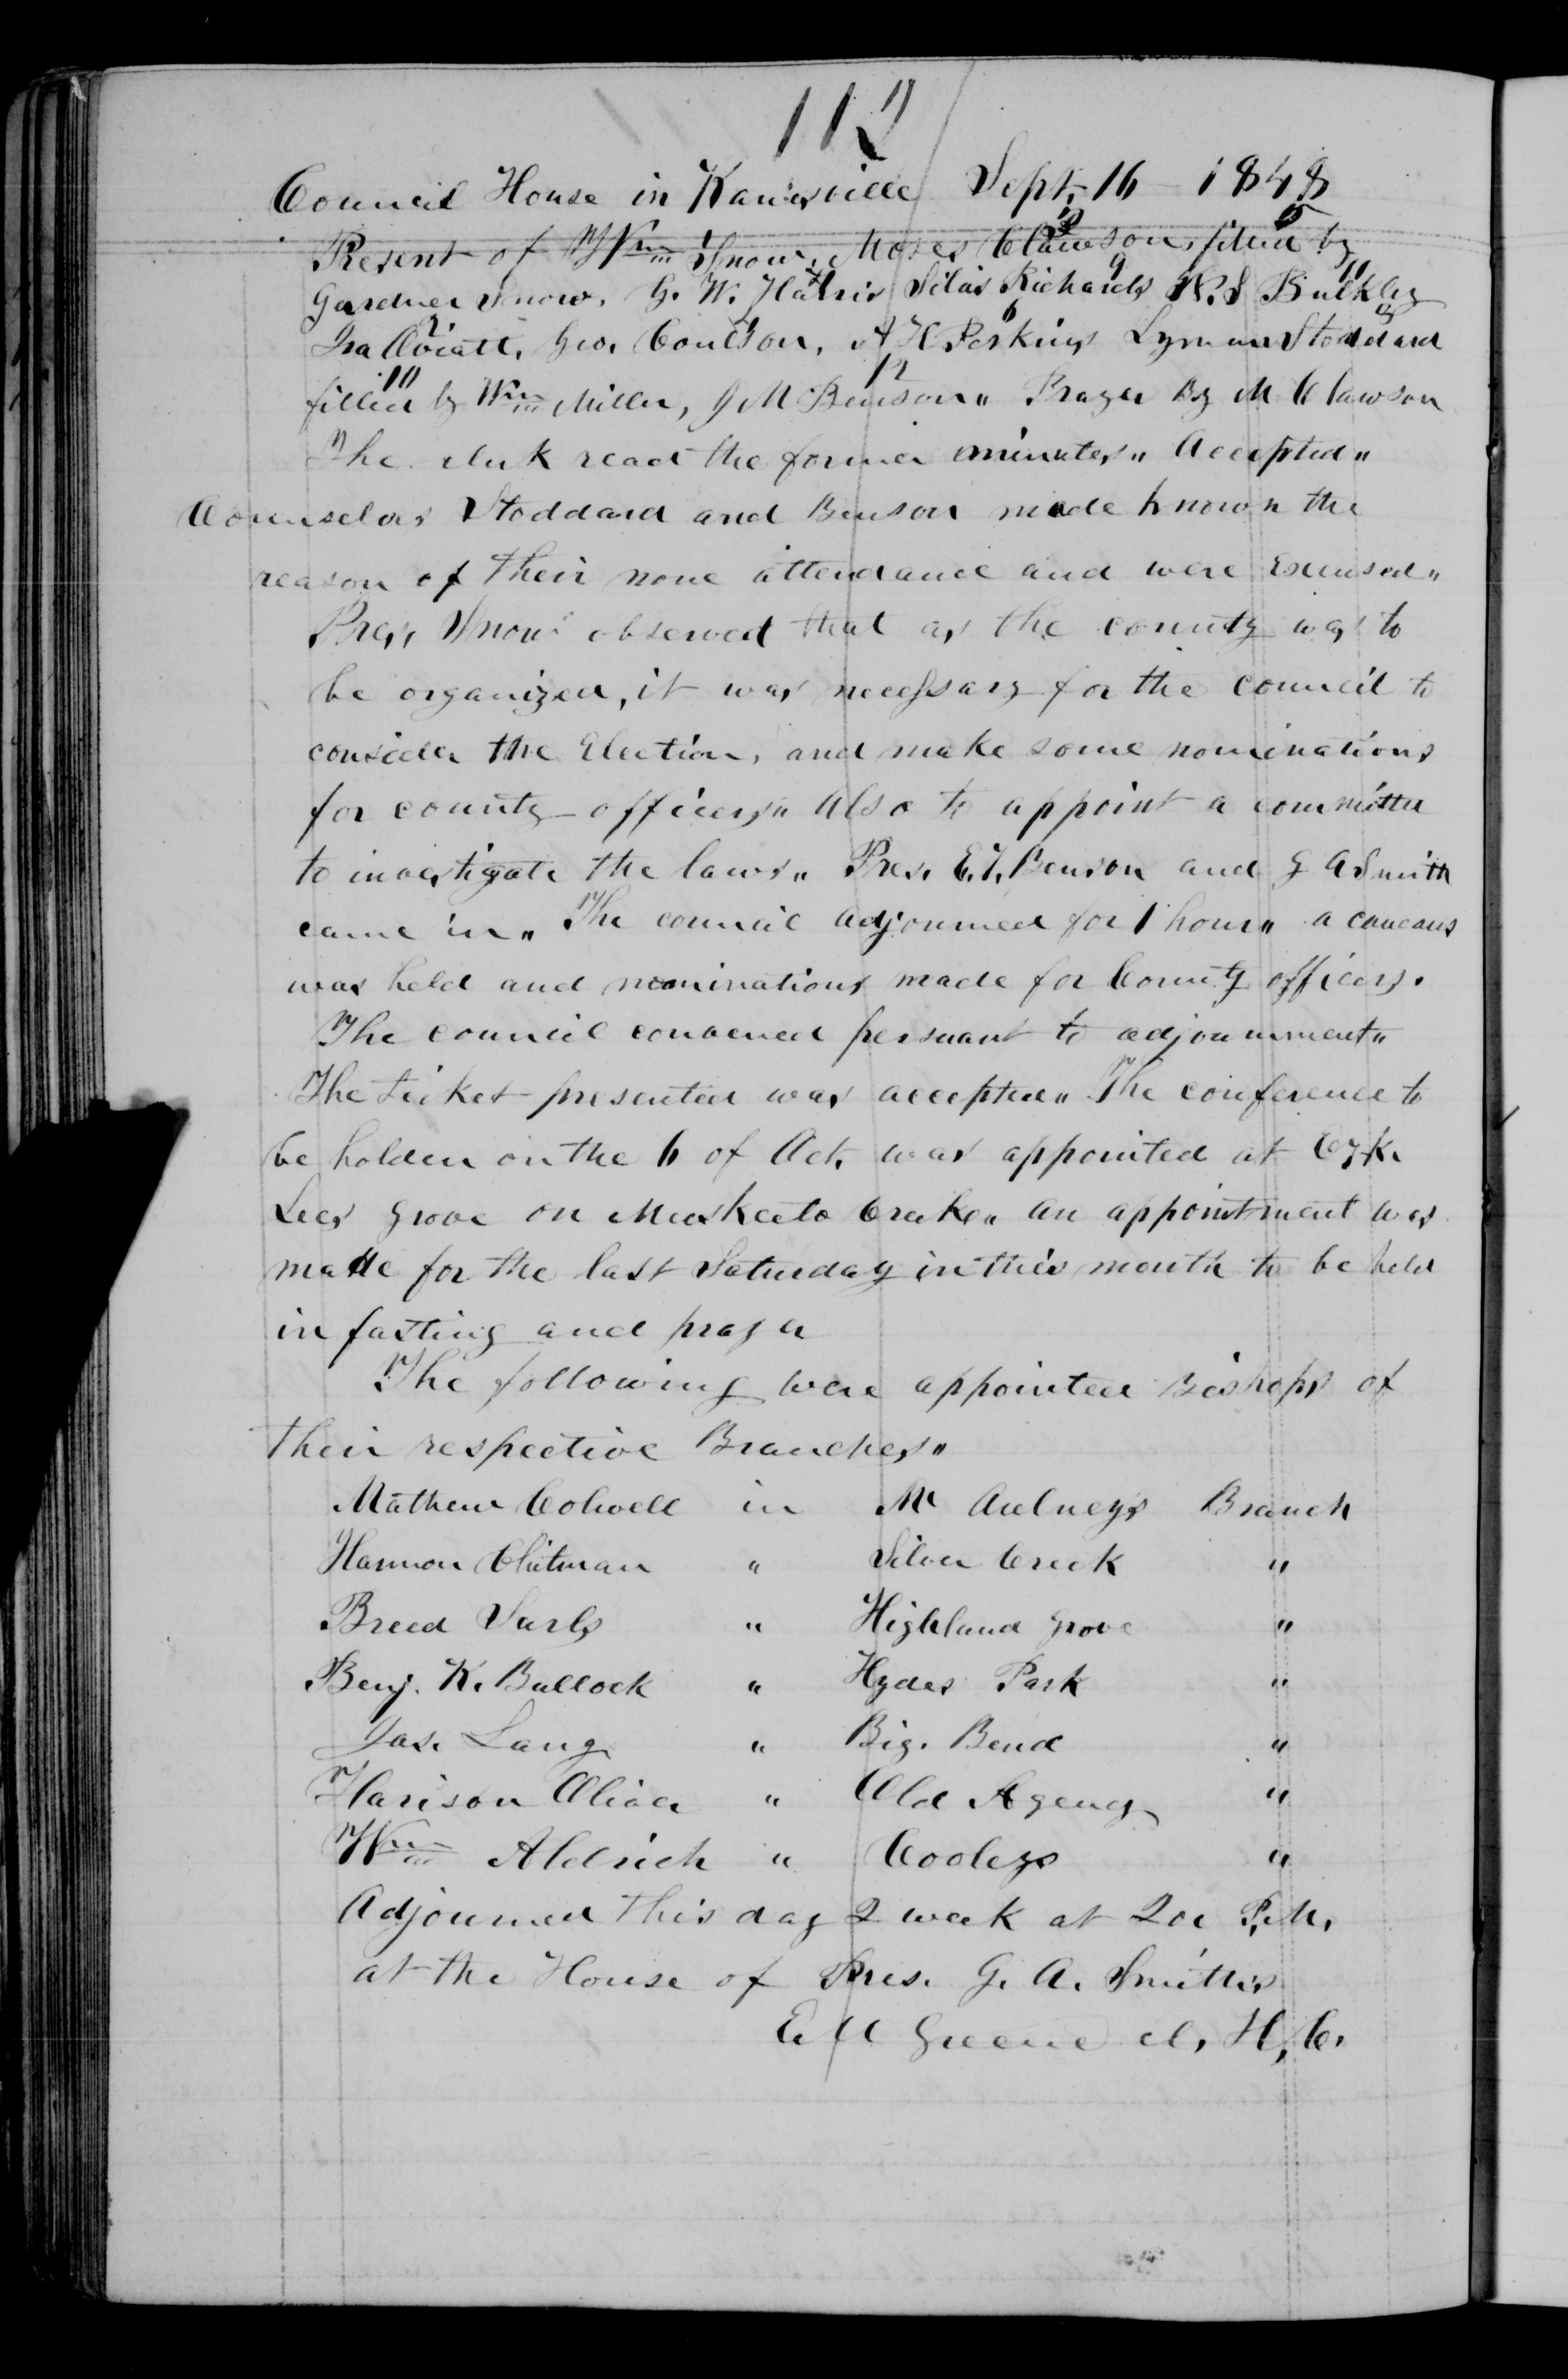 112
Council House in Kanesville Sept. 16 1848
Present of Wm Snow, Moses Clawson, filled by
Gardner Snow, G. W. Harris Silas Richards N. S Bulkley
Ira Oviatt, Geo. Coulson, A H Perkins Lyman Stoddard
filled by Wm Miller, J M Benson „ Prayer By M Clawson
The clerk read the former minutes „ Accepted „
Counselors Stoddard and Benson made known the
reason of their none attendance and were Excused „
Pres. Snow observed that as the county was to
be organized, it was necessary for the council to
consider the Election, and make some nominations
for county officers „ Also to appoint a committee
to investigate the laws „ Pres. E. T. Benson and G A Smith
came in „ The council adjourned for 1 hour „ a caucus
was held and nominations made for County officers.
The council convened persuant to adjournment „
The ticket presented was accepted „ The conference to
be holden on the 6 of Oct. was appointed at
Lees grove on Muskeeto Creeke „ an appointment was
made for the last Saturday in this month to be held
in fasting and prayer
The following were appointed Bishops of
their respective Branches „
Mathew Colwell in Mc Aulneys Branch
Harmon Chitman „ Silver Creek „
Breed Sarls „ Highland Grove „
Benj. K. Bullock „ Hydes Park „
Jas. Lang „ Big. Bend „
Harison Oliver „ Old Agency „
Wm Aldrich „ Cooleys „
Adjourned this day 2 week at 2 oc P. M.
at the House of Pres. G. A. Smith's
E. M Greene cl, H, C.